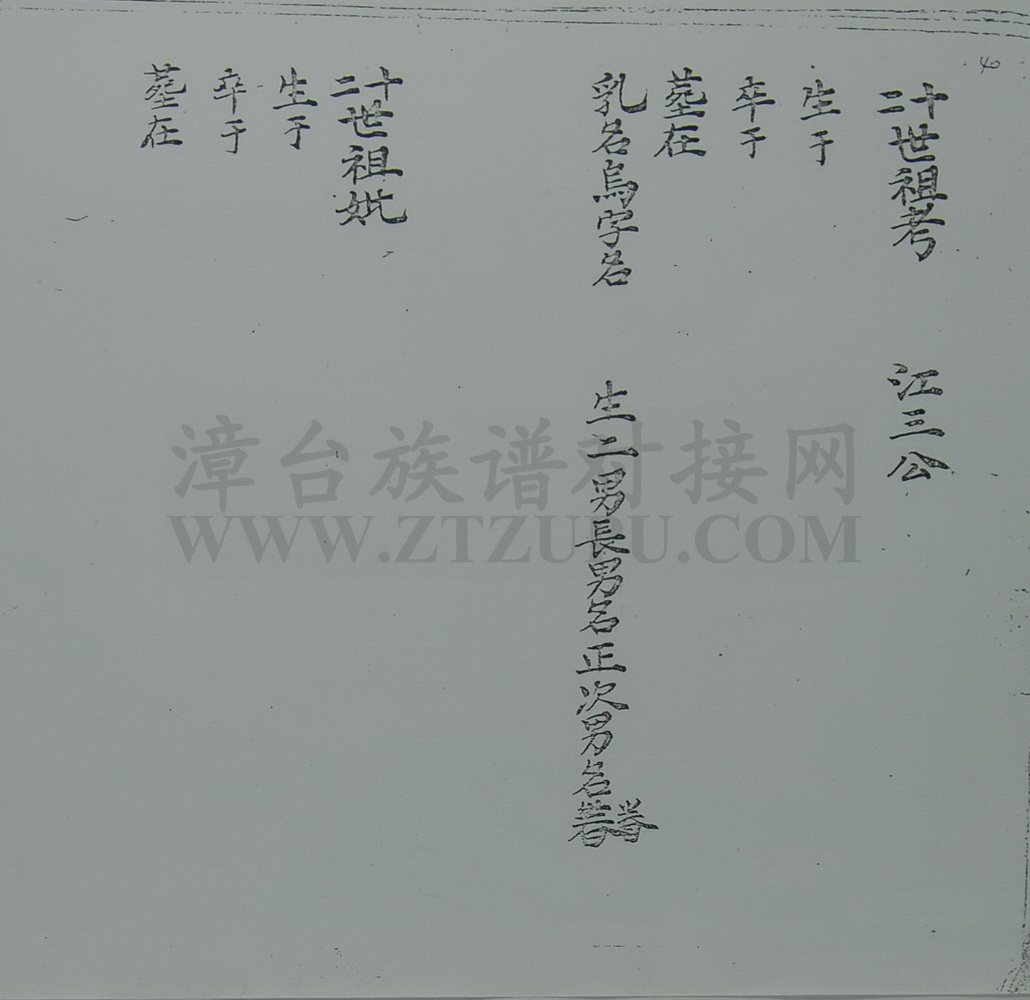 40
十二世祖考 江三公
生于
卒于
墓在
乳名烏字名 生二男長男名正次男名
十二世祖妣
生于
卒于
墓在
漳台族谱对接网
WWW.ZTZUPU.COM